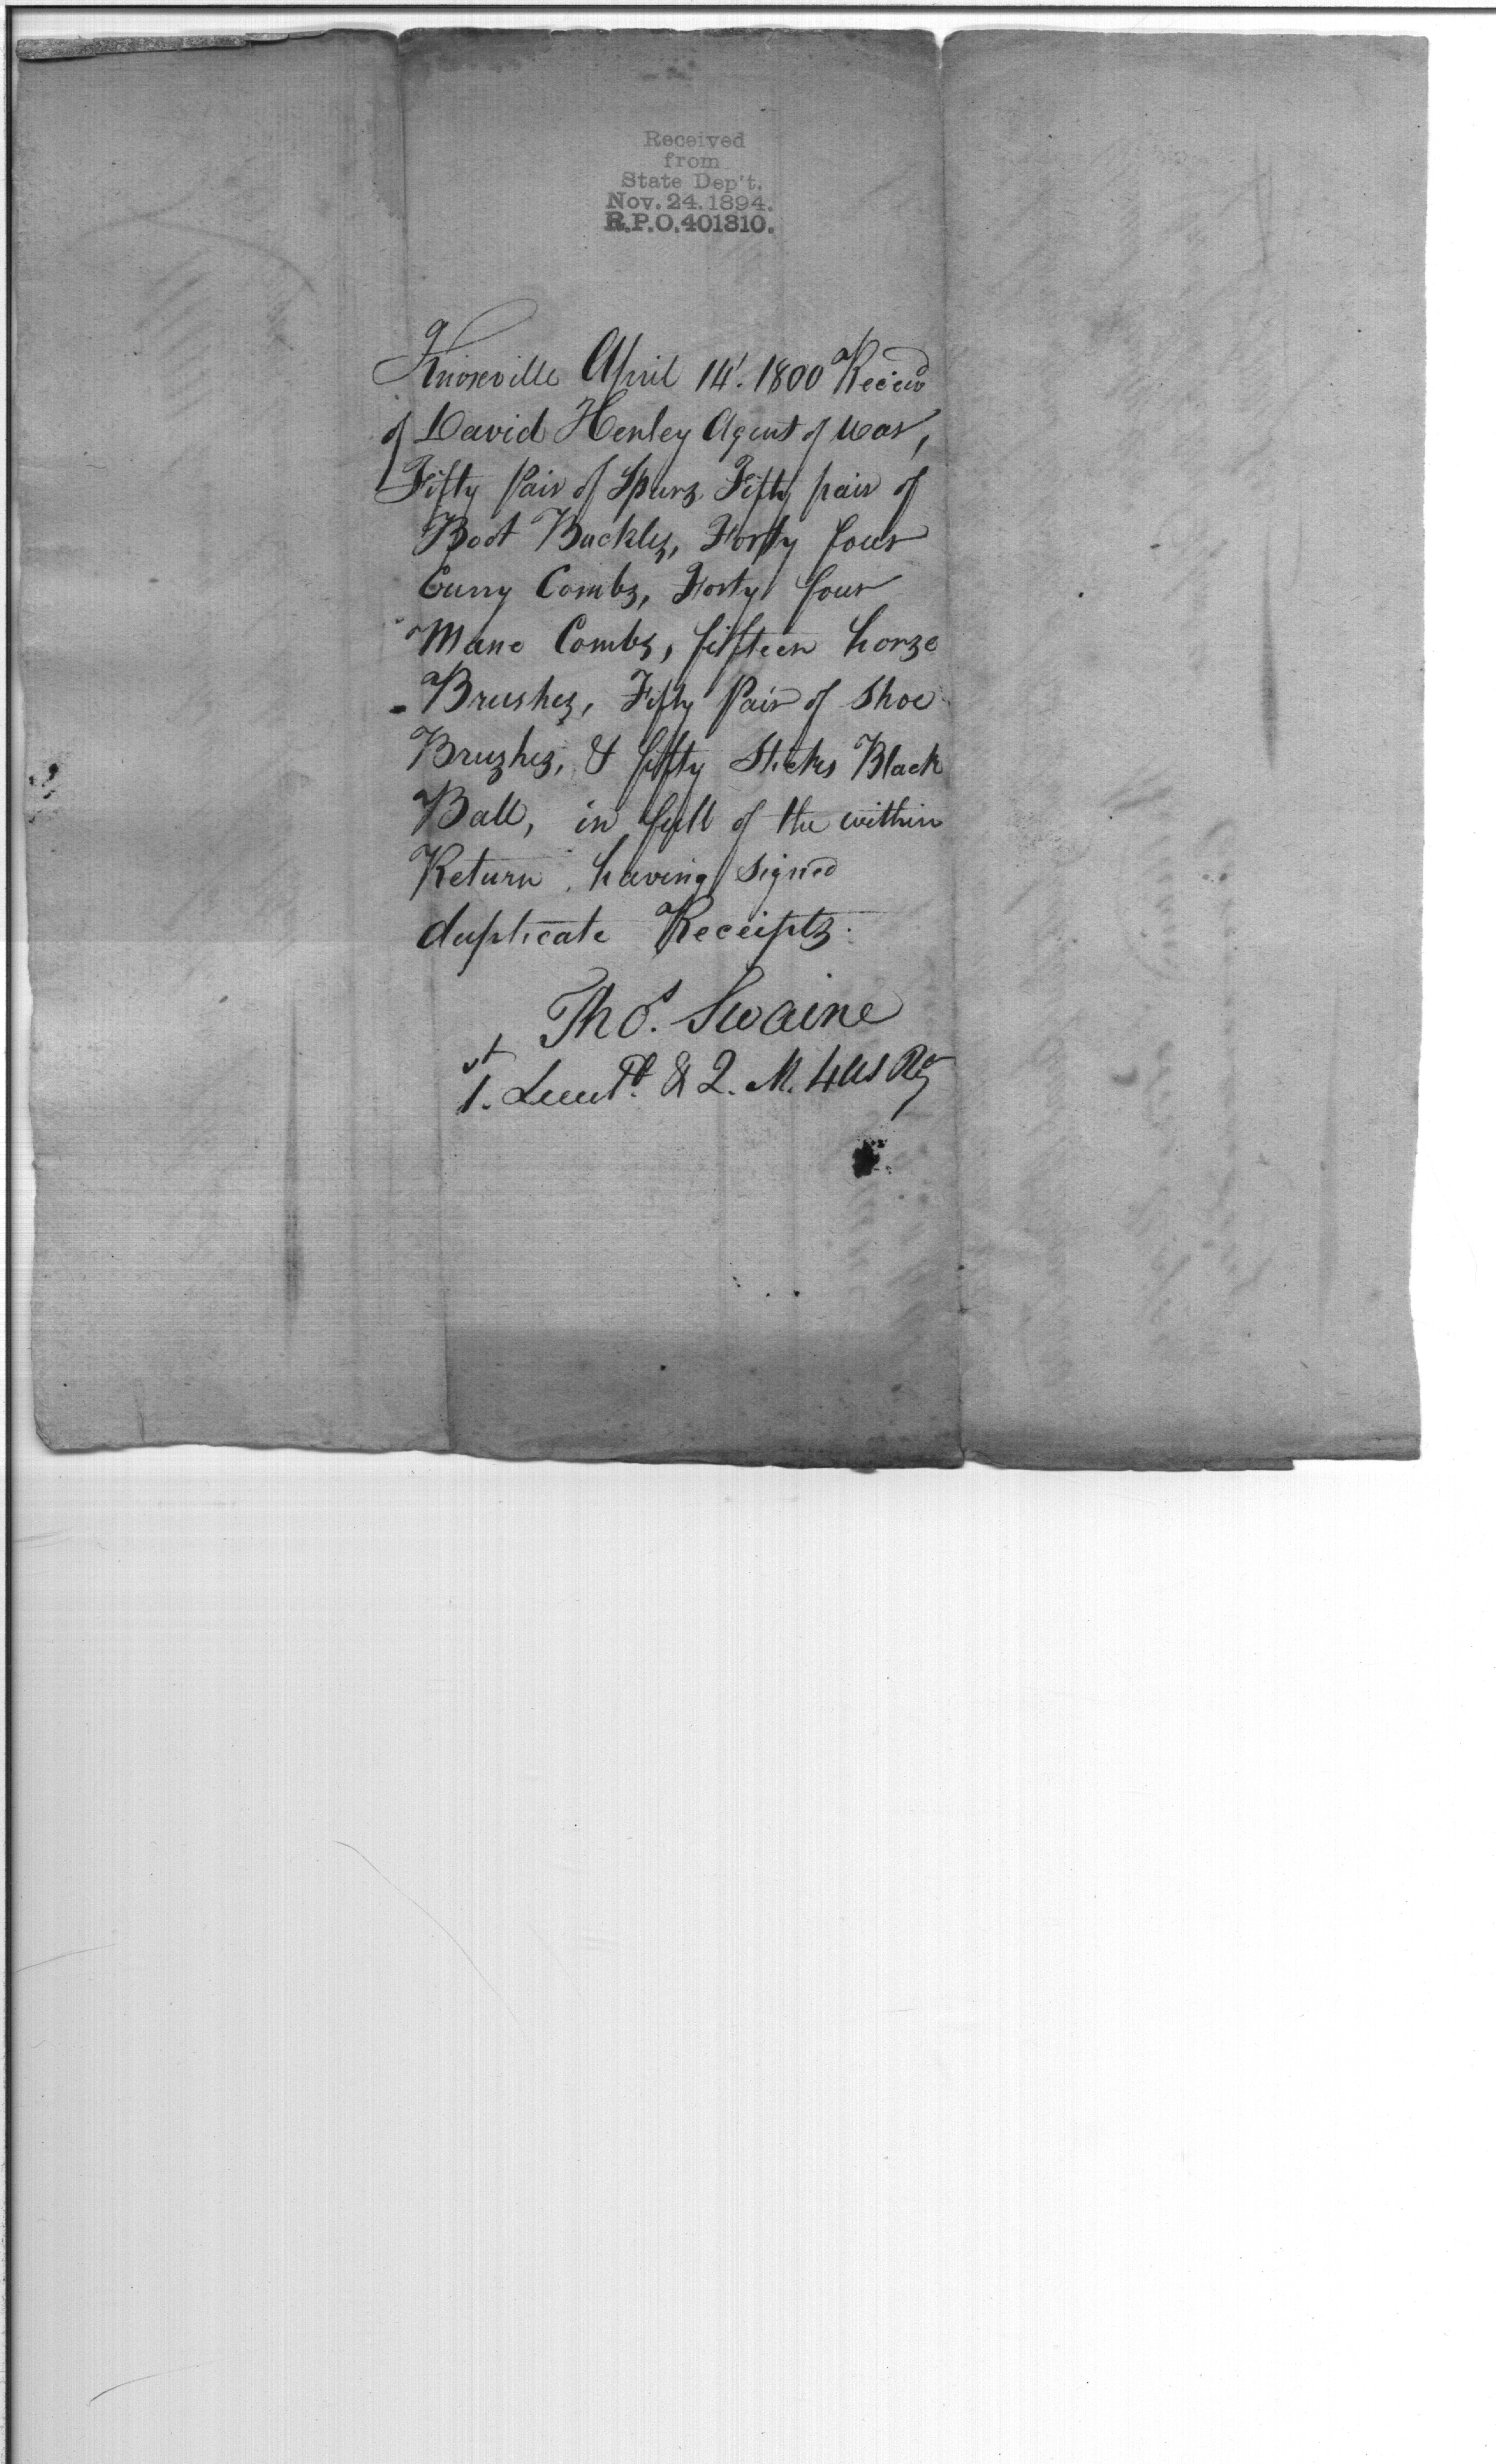 Received
from
State Dep't.
Nov. 24. 1894.
R.P.O. 401310.
Knoxville April 14t. 1800 Receivd
of David Henley Agent of War,
Fifty Pair of Spurs Fifty pair of
Boot Buckles, Forty four
Curry Combs, Forty four
Mane Combs, fifteen horse
Brushes, Fifty Pair of Shoe
Brushes, & fifty Sticks Black
Ball, in full of the within
Return, having signed
duplicate Receipts.
Thos. Swaine
1st. Lieut. & Q. M. 4 US Reg